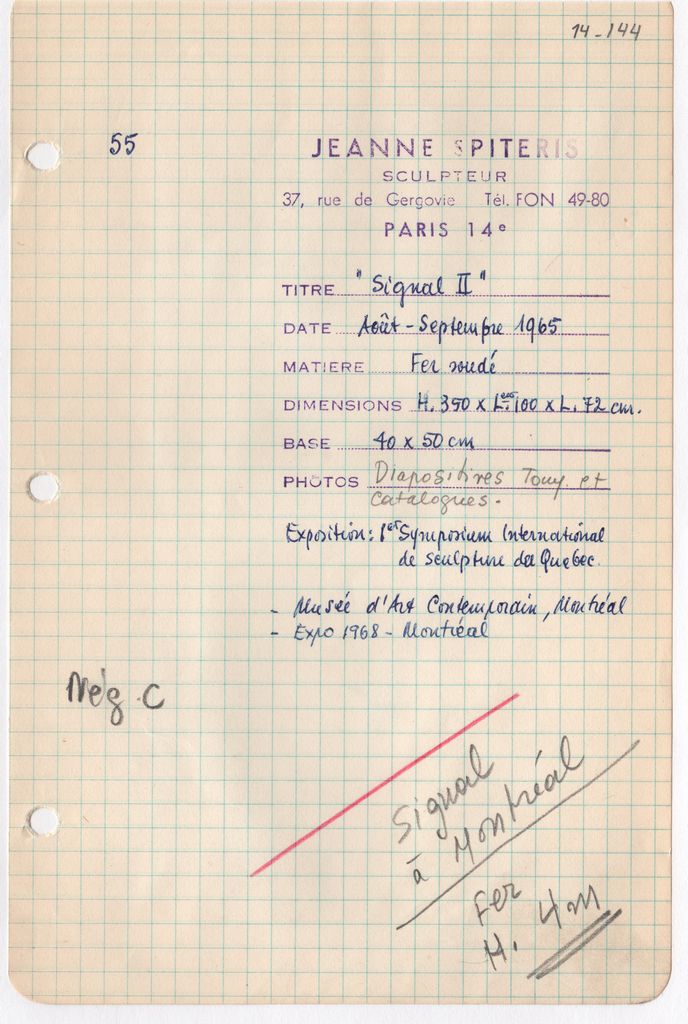 14-144
55
JEANNE SPITERIS
SCULPTEUR
37, rue de Gergovie Tél. FON 49-80
PARIS 14e
TITRE "Signal II"
DATE Août - Septembre 1965
MATIERE Fer soudé
DIMENSIONS H. 350 x L. 100 x L. 72 cm.
BASE 40 x 50 cm
PHOTOS Diapositives Tony et
catalogues.
Exposition: 1er Symposium International
de sculpture de Quebec.
- Musée d'Art Contemporain, Montréal
- Expo 1968 - Montréal
Nég. C
Signal
à Montréal
Fer
H. 4m